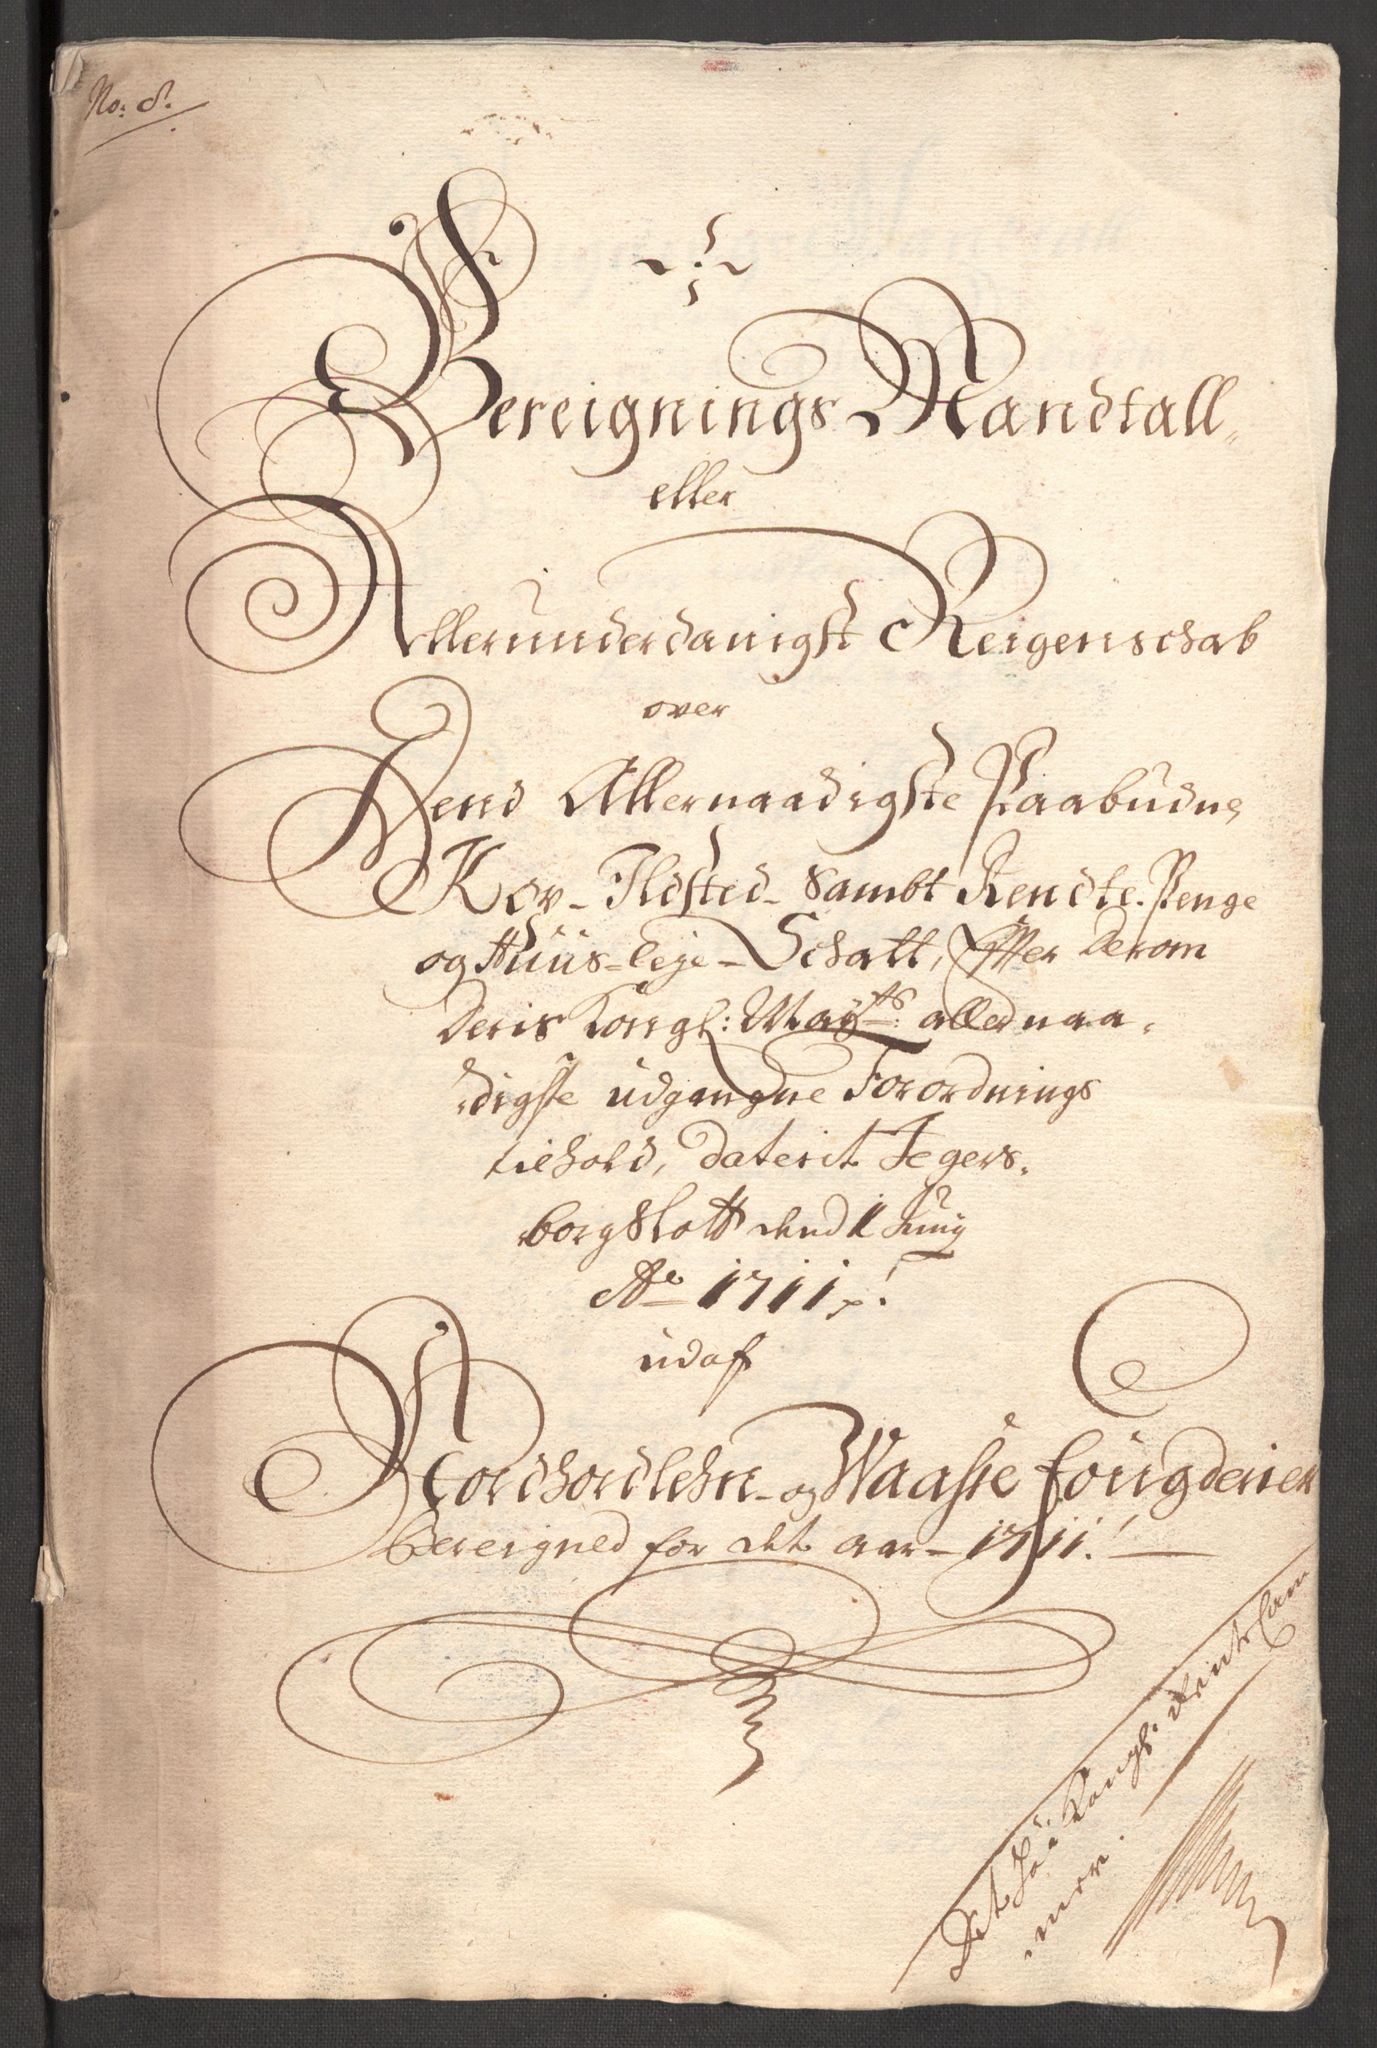 No: 8.
Bereignings Mandtall
eller
Allerunderdanigst Reigenschab
over
Dend Allernaadigste Paabudne,
Kov- Ildsted- sambt Rendte-Penge
og Huus-leje-Schatt, Effter derom
Deris Kongl: Mayts: allernaa-
digste udgangne Forordnings
tiehold, daterit Jegers-
borg Slott dend 1 Junij
Ao 1711,!
udaf
Nordhordlehn- og Waasse fougderier
Bereigned for det aar- 1711!
Det Höÿ Kongl: Rente Cam
mer.